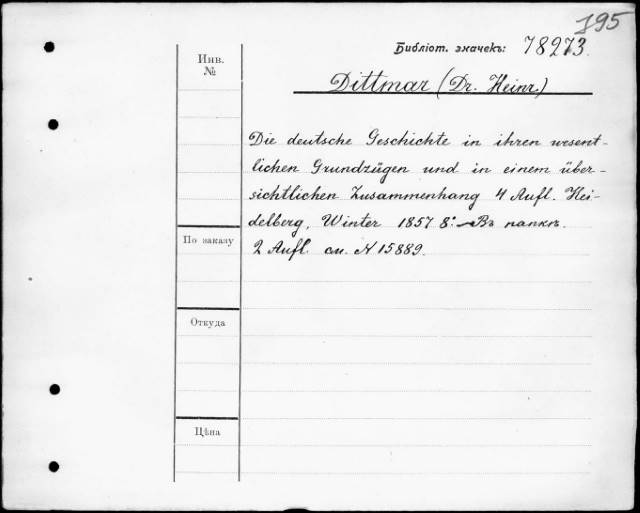 195
Библіот. значекъ: 78273.
Инв.
№
Dittmar (Dr. Heinr.)
Die deutsche Geschichte in ihren wesent-
lichen Grundzügen und in einem über-
sichtlichen Zusammenhang 4 Aufl. Hei-
delberg, Winter 1857 8º. – Въ папкѣ.
2 Aufl. см. N 15889.
По заказу
Откуда
Цѣна